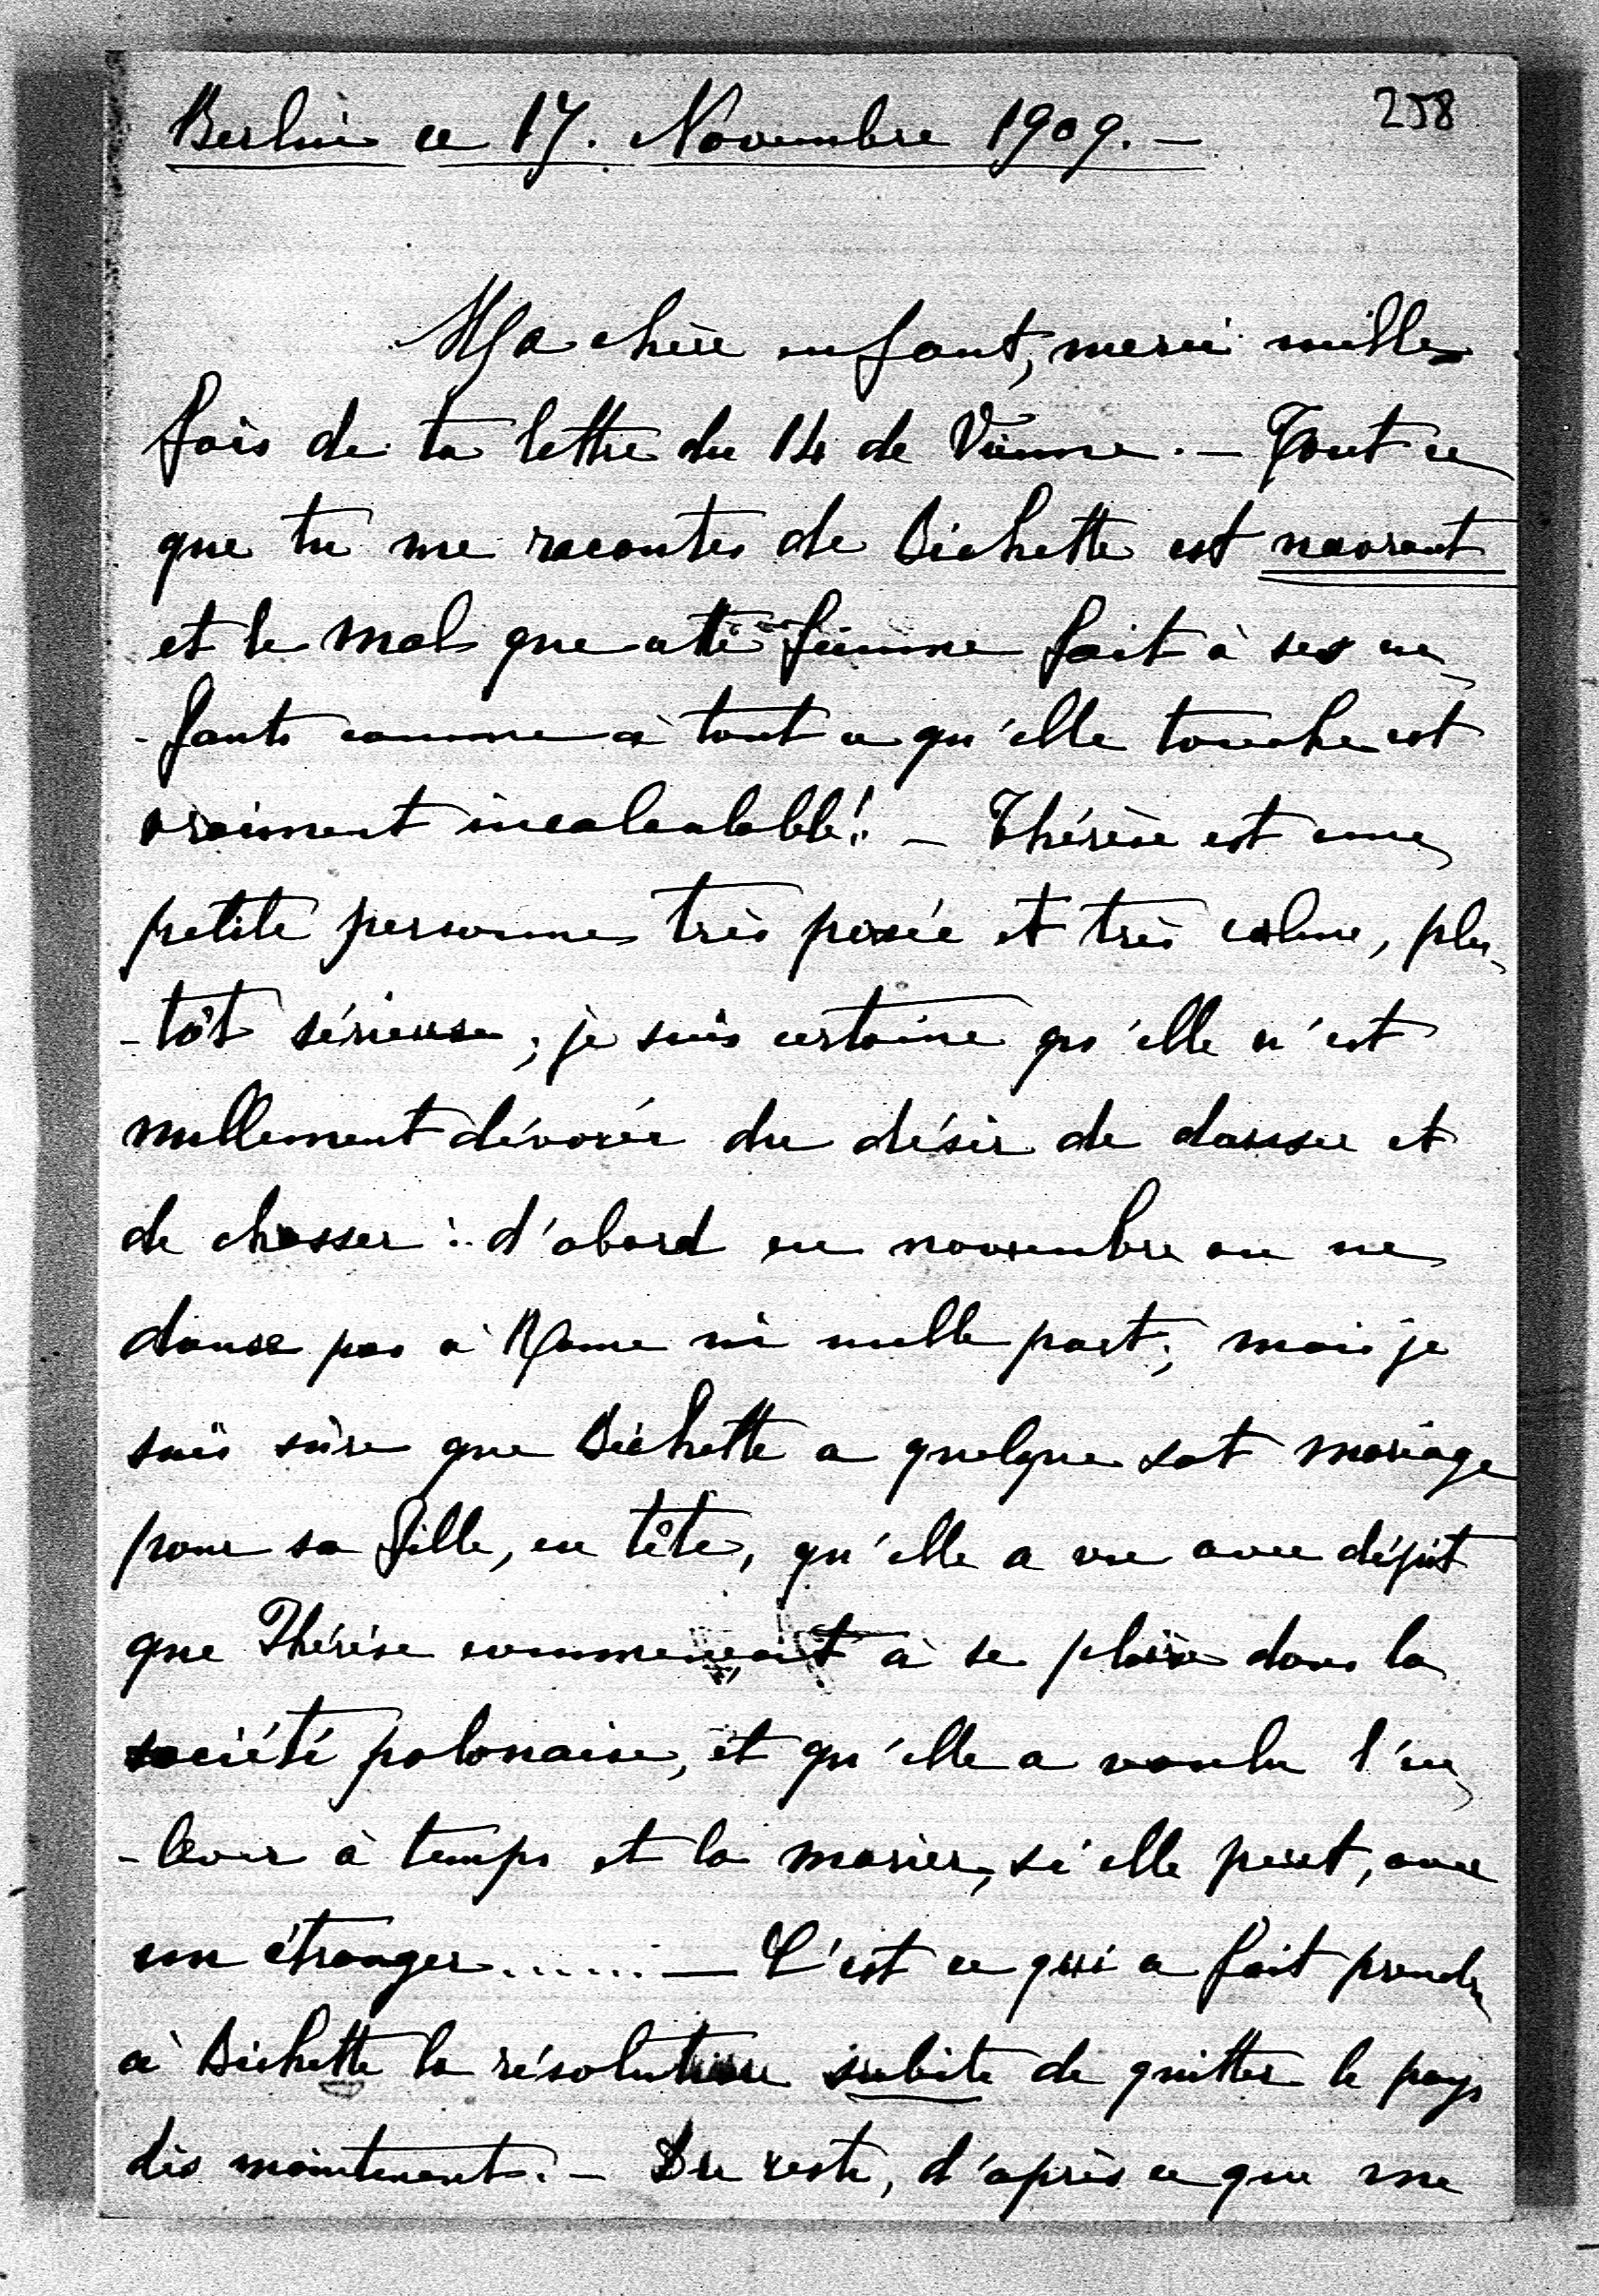 258
Berlin ce 17. Novembre 1909. —
Ma chère enfant, merci mille
fois de ta lettre du 14 de Vienne. — Tout ce
que tu me racontes de Bichette est navrant
et le mal que cette femme fait à ses en-
-fants comme à tout ce qu'elle touche est
vraiment incalculable! — Thérèse est une
petite personne très posée et très calme, plu-
-tôt sérieuse ; je suis certaine qu'elle n'est
nullement dévorée du désir de danser et
de chasser : d'abord en novembre on ne
danse pas à Rome ni nulle part ; mais je
suis sûre que Bichette a quelque sot mariage
pour sa fille, en tête, qu'elle a vu avec dépit
que Thérèse commençait à se plaire dans la
société polonaise, et qu'elle a voulu l'en-
-lever à temps et la marier, si elle peut, avec
un étranger...... — C'est ce qui a fait prendre
à Bichette la résolution subite de quitter le pays
dès maintenant. — Du reste, d'après ce que me